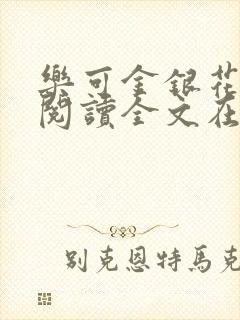 樂可金銀花
閱讀全文在
别克恩特馬克